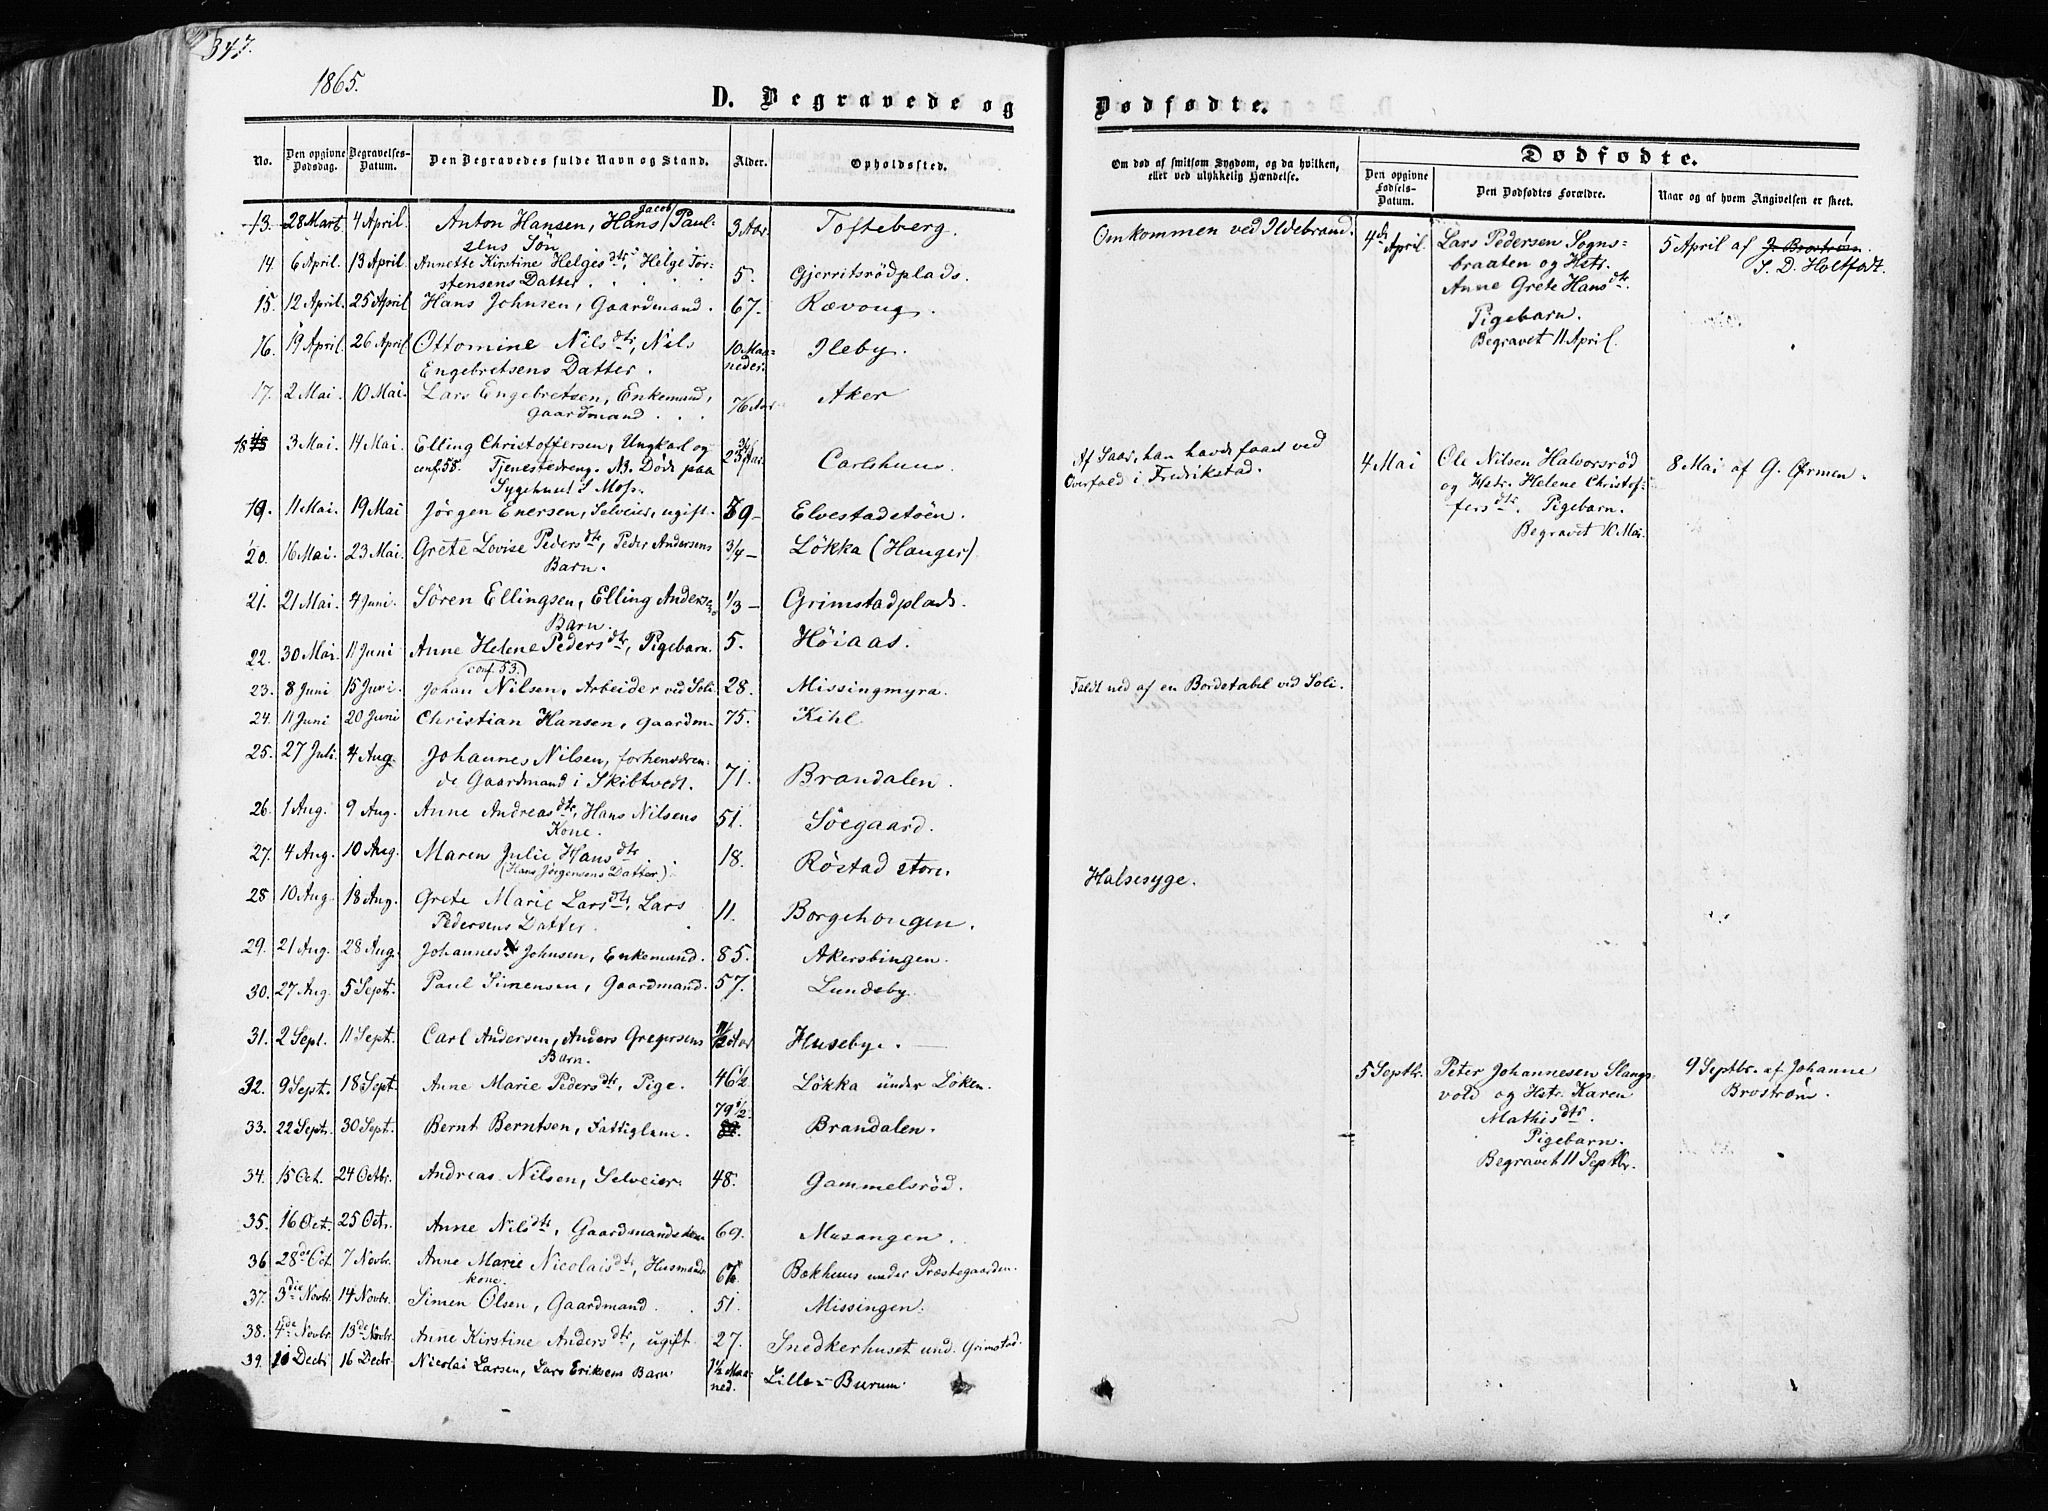 347.
1865.
D. Begravede og
Dødfødte.
No. Den opgivne Dødsdag. Begravelses-Datum. Den Begravedes fulde Navn og Stand. Alder. Opholdssted.
Om død af smitsom Sygdom, og da hvilken, eller ved ulykkelig Hændelse.
Dødfødte.
Den opgivne Fødsels-Datum. Den Dødfødtes Forældre. Naar og af hvem Angivelsen er skeet.
13. 28 Marts 4 April. Anton Hansen, Hans Jacob Paul- 3 Aar Tofteberg.
sens Søn
14. 6 April. 13 April. Annette Kirstine Helgesdtr, Helge Tor- 5. Gjerritsrödplads.
stensens Datter . . . .
15. 12 April. 25 April Hans Johnsen, Gaardmand. 67. Rævoug.
16. 19 April. 26 April. Ottomine Nilsdtr, Nils 10 Maa- Ileby.
Engebretsens Datter. neder.
17. 2 Mai. 10 Mai. Lars Engebretsen, Enkemand, 76 Aar Aker
Gaardmand . . .
18 3 Mai. 14 Mai. Elling Christoffersen, Ungkarl og 23 3/4 Aar. Carlshuus.
conf. 58. Tjenestedreng. NB. Døde paa
Sygehuset i Moss.
19. 11 Mai. 19 Mai Jörgen Enersen, Selveier, ugift. 79 – Elvestadstöen.
20. 16 Mai. 23 Mai. Grete Lovise Pedersdtr, Peder Andersens 3/4 – Løkka (Hauger)
Barn.
21. 21 Mai. 4 Juni. Sören Ellingsen, Elling Andersens 1/3 – Grimstadplads.
Barn.
22. 30 Mai. 11 Juni Anne Helene Pedersdtr, Pigebarn. 5. Höiaas.
conf. 53.
23. 8 Juni 15 Juni. Johan Nilsen, Arbeider ved Soli. 28. Missingmyra.
24. 11 Juni 20 Juni Christian Hansen, Gaardm. 75. Kihl
25. 27 Juli. 4 Aug. Johannes Nilsen, forhenværen-
de Gaardmand i Skibtvedt. 71. Brandalen.
26. 1 Aug. 9 Aug. Anne Andreasdtr, Hans Nilsens 51. Söegaard.
Kone.
27. 4 Aug. 10 Aug. Maren Julie Hansdtr 18. Röstad store.
(Hans Jørgensens Datter).
28 10 Aug. 18 Aug. Grete Marie Larsdtr, Lars 11. Borgehougen.
Pedersens Datter.
29. 21 Aug. 28 Aug. Johannes Johnsen, Enkemand. 85. Akersbingen.
30. 27 Aug. 5 Septr. Paul Simensen, Gaardmand. 57. Lundeby.
31. 2 Sept. 11 Sept. Carl Andersen, Anders Gregersens 11/12 Aar Huseby.
Barn.
32. 9 Sept. 18 Sept. Anne Marie Pedersdtr, Pige. 46 1/2 Løkka under Løken.
33. 22 Septr. 30 Sept. Bernt Berntsen, Fattiglem. 79 1/2 Brandalen.
34. 15 Oct. 24 Octbr. Andreas Nilsen, Selveier. 48. Gammelsröd.
35. 16 Oct. 25 Octr. Anne Nilsdtr, Gaardmandskone 69. Musangen.
36 28de Oct. 7 Novbr. Anne Marie Nicolaisdtr, Husmands- Bækhuus under Præstegaarden.
kone.
37. 3die Novbr. 14 Novbr. Simen Olsen, Gaardmand. 51. Missingen.
38. 4de Novbr. 13de Novbr. Anne Kirstine Andersdtr, ugift. 27. Snedkerhuset und. Grimstad.
39. 10 Decbr 16 Decbr. Nicolai Larsen, Lars Eriksens Barn. 1 1/2 Maa- Lille-Burum.
ned.
Omkommen ved Ildebrand.
Af Saar, han havde faaet ved
Overfald i Fredrikstad.
Faldt ned af en Bordstabel ved Soli.
Halsesyge.
4de April. Lars Pedersen Sogns-
braaten og Hstr.
Anne Grete Hansdtr.
Pigebarn.
Begravet 11 April.
5 April af J. Broström.
S. D. Holtfodt.
4 Mai Ole Nilsen Halvorsröd
og Hstr. Helene Christof-
fersdtr. Pigebarn.
Begravet 10 Mai.
8 Mai af G. Ørmen.
5 Septbr. Peter Johannesen Slangs-
vold og Hstr. Karen
Mathisdtr.
Pigebarn.
Begravet 11 Septbr.
9 Septbr. af Johanne
Broström.